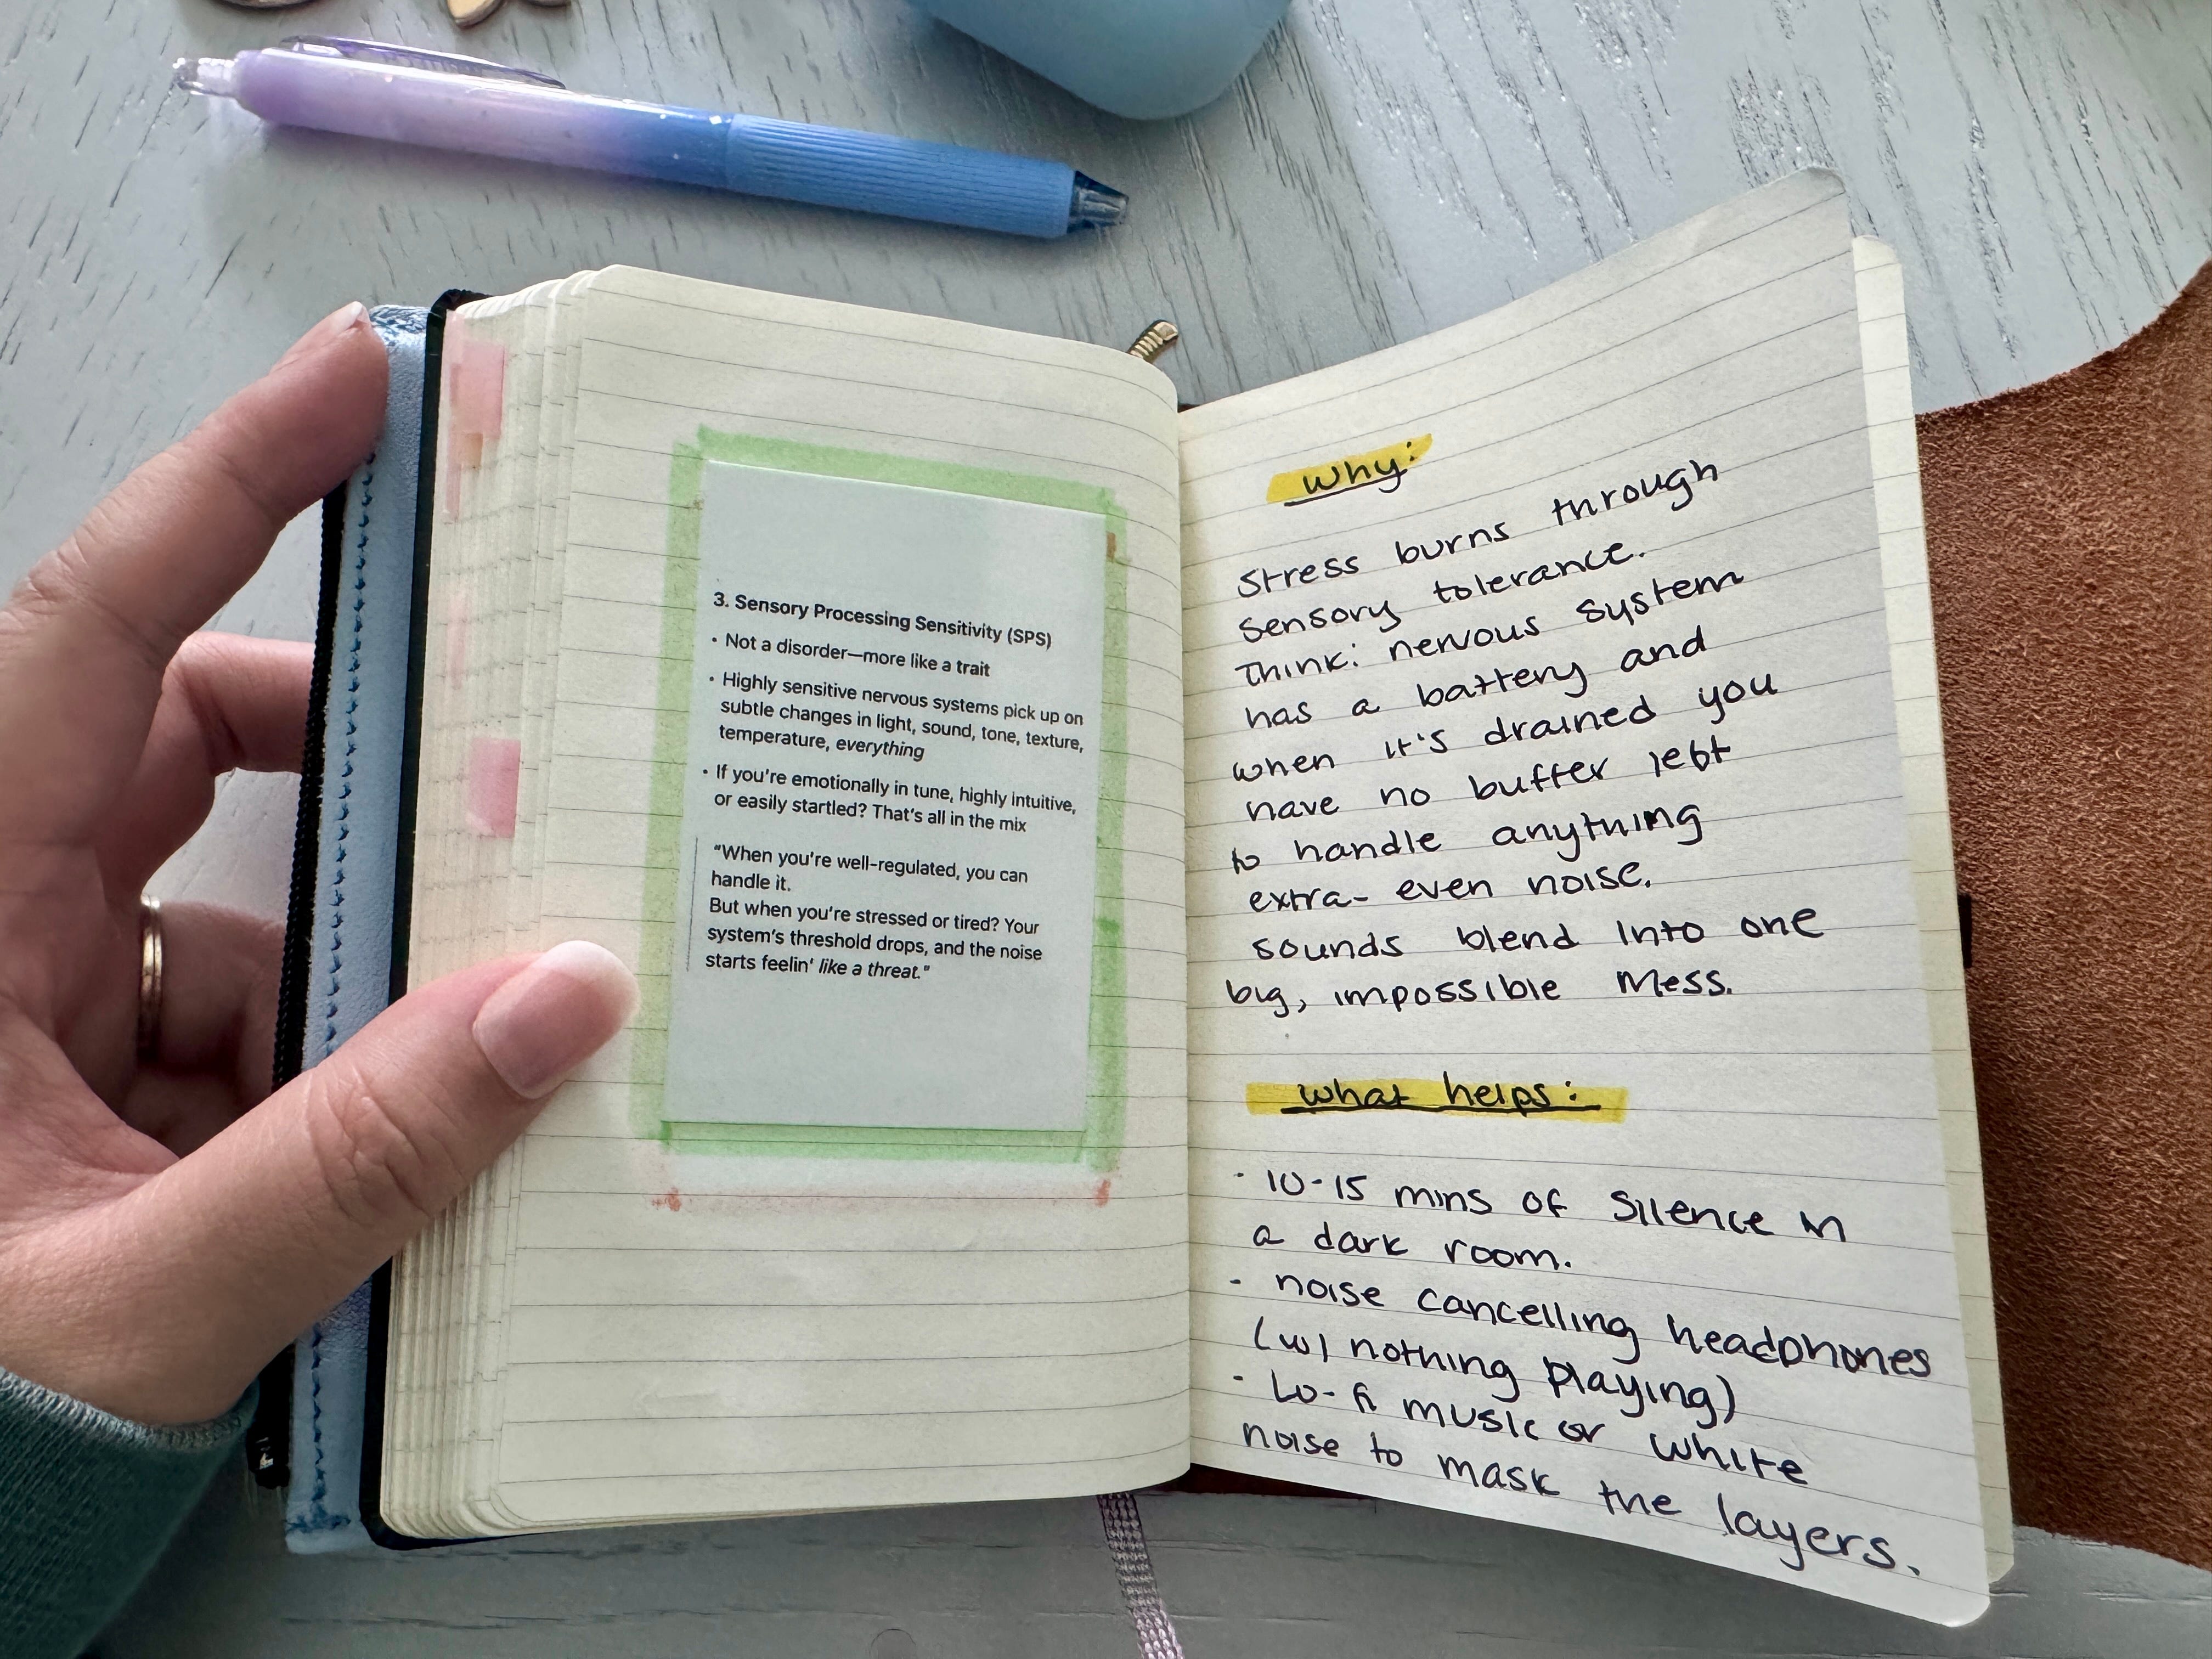 3. Sensory Processing Sensitivity (SPS)
• Not a disorder—more like a trait
• Highly sensitive nervous systems pick up on
subtle changes in light, sound, tone, texture,
temperature, everything
• If you're emotionally in tune, highly intuitive,
or easily startled? That's all in the mix
"When you're well-regulated, you can
handle it.
But when you're stressed or tired? Your
system's threshold drops, and the noise
starts feelin' like a threat."
why:
Stress burns through
sensory tolerance.
Think: nervous system
has a battery and
when it's drained you
have no buffer left
to handle anything
extra- even noise.
sounds blend into one
big, impossible mess.
what helps:
· 10-15 mins of silence in
a dark room.
- noise cancelling headphones
(w/ nothing playing)
- Lo-fi music or white
noise to mask the layers.